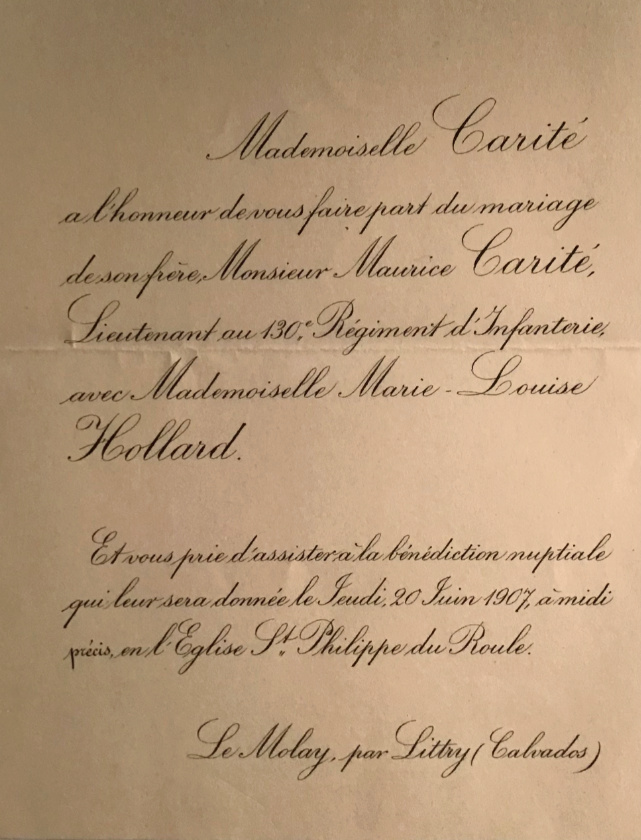 Mademoiselle Carité
a l'honneur de vous faire part du mariage
de son frère, Monsieur Maurice Carité,
Lieutenant au 130.e Régiment d'Infanterie,
avec Mademoiselle Marie-Louise
Hollard.
Et vous prie d'assister à la bénédiction nuptiale
qui leur sera donnée le Jeudi, 20 Juin 1907, à midi
précis, en l'Eglise St. Philippe du Roule.
Le Molay, par Littry (Calvados)